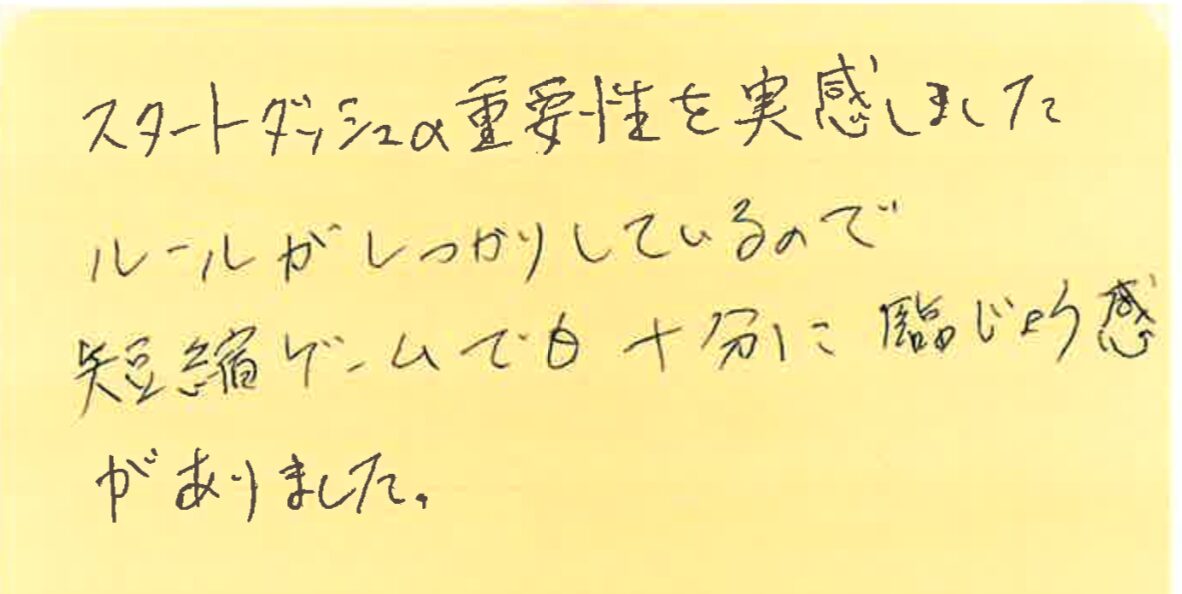 スタートダッシュの重要性を実感しました
ルールがしっかりしているので
短縮ゲームでも十分に臨じょう感
がありました。